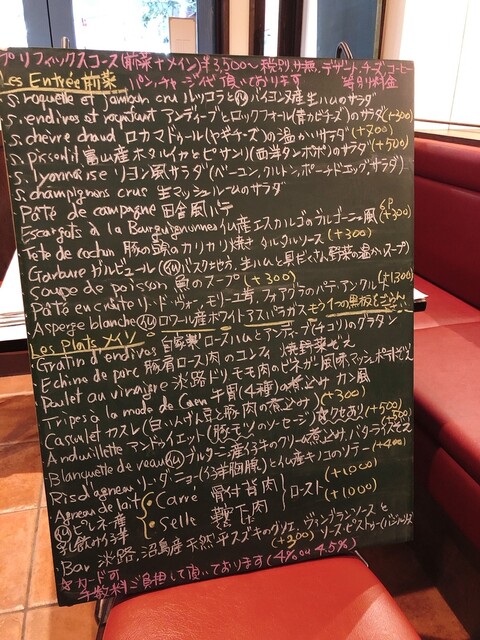 プリフィックスコース(前菜+メイン)¥3,500〜 税別、サ無、デザート、チーズ、コーヒー
Les Entrée 前菜 パン・チャージ代頂いております 等別料金
S. roquette et jambon cru ルッコラと バイヨンヌ産生ハムのサラダ
S. endives et roquefort アンディーブとロックフォール(青カビチーズ)のサラダ(+300)
S. chèvre chaud ロカマドゥール(ヤギチーズ)の温かいサラダ(+700)
S. pissenlit 富山産ホタルイカとピサンリ(西洋タンポポ)のサラダ(+500)
S. lyonnaise リヨン風サラダ(ベーコン、クルトン、ポーチドエッグ、サラダ)
S. champignons crus 生マッシュルームのサラダ
Pâté de campagne 田舎風パテ
Escargots à la Bourguignonne 仏産エスカルゴのブルゴーニュ風 (+300)
Tête de cochon 豚の頭のカリカリ焼き タルタルソース (+300)
Garbure ガルビュール バスクもち、生ハムと具だくさん野菜の温かいスープ)
Soupe de poisson 魚のスープ (+300)
Pâté en croûte リ・ド・ヴォー、モリーユ茸、フォアグラのパテ・アンクルート (+1300)
Asperge blanche ロワール産ホワイトアスパラガス もう1つの黒板をごらん下さい
Les Plats メイン
Gratin d'endives 自家製ロースハムとアンディーブ(チコリ)のグラタン
Echine de porc 豚肩ロース肉のコンフィ 焼野菜ぞえ
Poulet au vinaigre 淡路ドリモモ肉のビネガー風味 マッシュポテトぞえ
Tripes à la mode de Caen 牛胃(4種)の煮込み カン風
Cassoulet カスレ(白いんげん豆と豚肉の煮込み) (+300)
Andouillette アンドゥイエット(豚モツのソーセージ) クセあり (+500)
Blanquette de veau ブルターニュ産仔牛のクリーム煮込み、バターライスぞえ (+500)
Ris d'agneau リ・ダニョー(仔羊胸腺)と仏産キノコのソテー (+400)
Agneau de lait ピレネー産乳飲み仔羊
・Carré 骨付背肉 (+1000)
・Selle 鞍下肉 (+1000)
ロースト
Bar 淡路、沼島産天然平スズキのグリエ、ヴィヴァグランソースとソースピストゥー(バジル) (+300)
カードの手数料ご負担して頂いております(4% ou 4.5%)